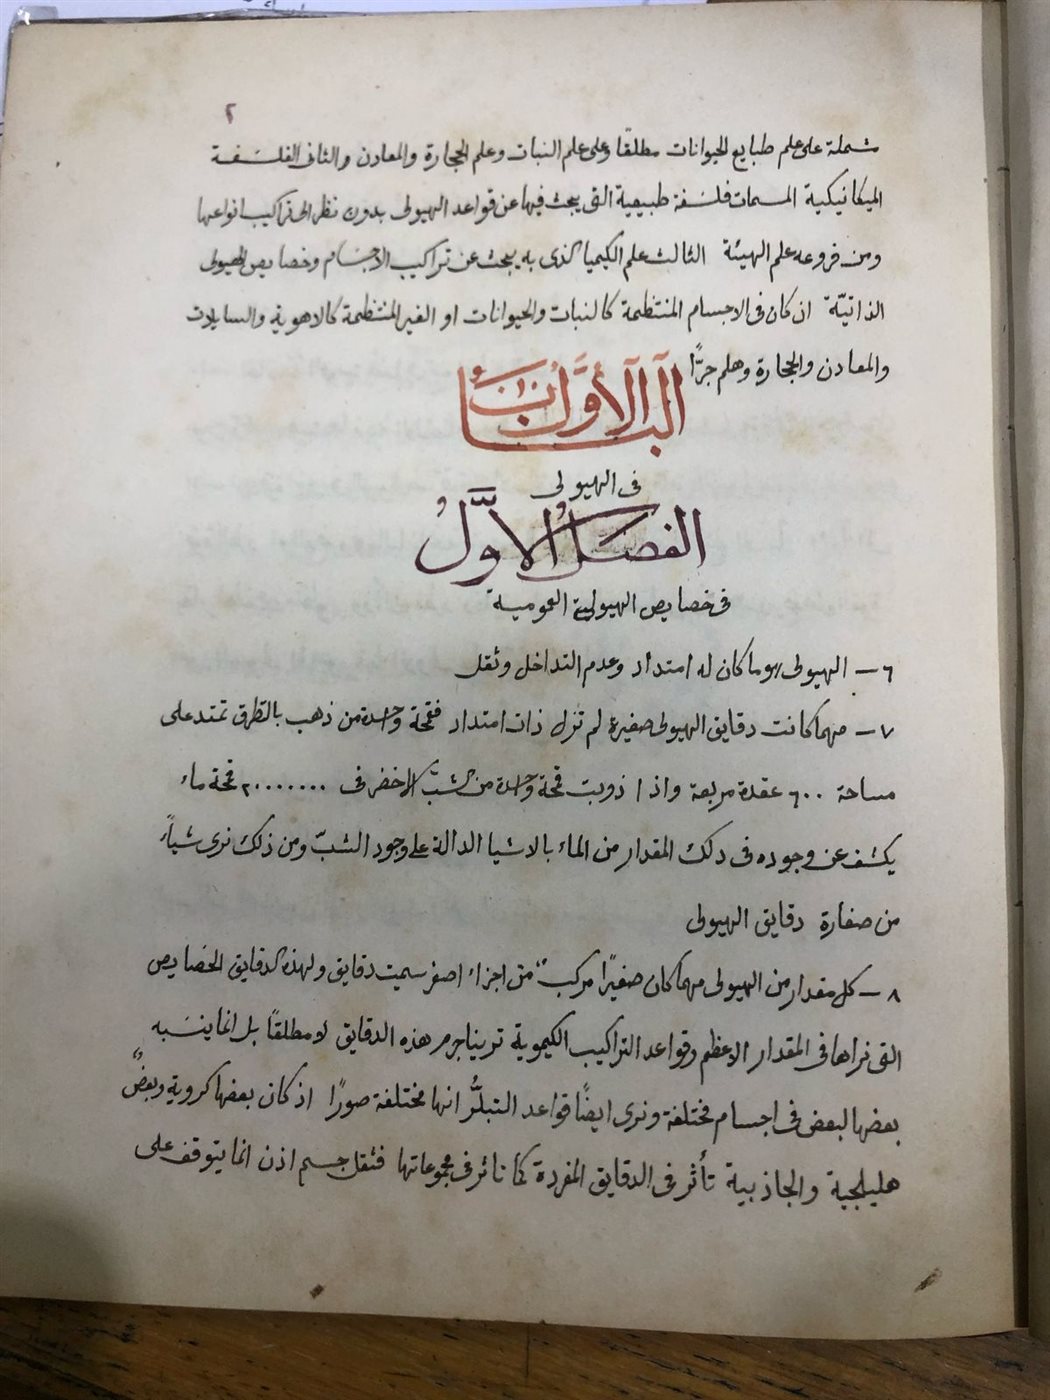 ٢
مشملة على علم طبايع الحيوانات مطلقًا وعلى علم النبات وعلم الحجارة والمعادن والثانى الفلسفة
الميكانيكية المسمات فلسفة طبيعية التى يبحث فيها عن قواعد الهيولى بدون نظر الى تراكيب انواعها
ومن فروعه علم الهيئة الثالث علم الكيميا الذى به يبحث عن تراكيب الاجسام وخصايص الهيولى
الذاتيّة ان كان فى الاجسام المنتظمة كالنبات والحيوانات او الغير المنتظمة كالاهوية والسايلات
والمعادن والحجارة وهلم جرًّا
الباب الأوّل
فى الهيولى
الفصل الاوّل
فى خصايص الهيولية العومية
٦ – الهيولى هو ما كان له امتداد وعدم التداخل وثقل
٧ – مهما كانت دقايق الهيولى صغيرة لم تزل ذات امتداد فقحة واحدة من ذهب بالتطرق تمتد على
مساحة ٦٠٠ عقدة مربعة واذا ذوبت قحة واحدة من الشبّ الاخضر فى ٢٠٠٠٠٠٠٠ قحة ماء
يكشف عن وجوده فى ذلك المقدار من الماء بالاشيا الدالة على وجود الشبّ ومن ذلك نرى شياءً
من صغارة دقايق الهيولى
٨ – كل مقدار من الهيولى مهما كان صغيرًا مركبٌ من اجزاء اصغر سميت دقايق ولهذه الدقايق الخصايص
التى نراها فى المقدار الاعظم وقواعد التراكيب الكيموية ترينا جرم هذه الدقايق لا مطلقًا بل انما ينسَبه
بعضها لبعض فى اجسام مختلفة ونرى ايضًا قواعد التبلّر انها مختلفة صورًا اذ كان بعضها كروية وبعضٌ
هليلجية والجاذبية تأثر فى الدقايق المفردة كما تاثر فى مجموعاتها فثقل جسم اذن انما يتوقف على